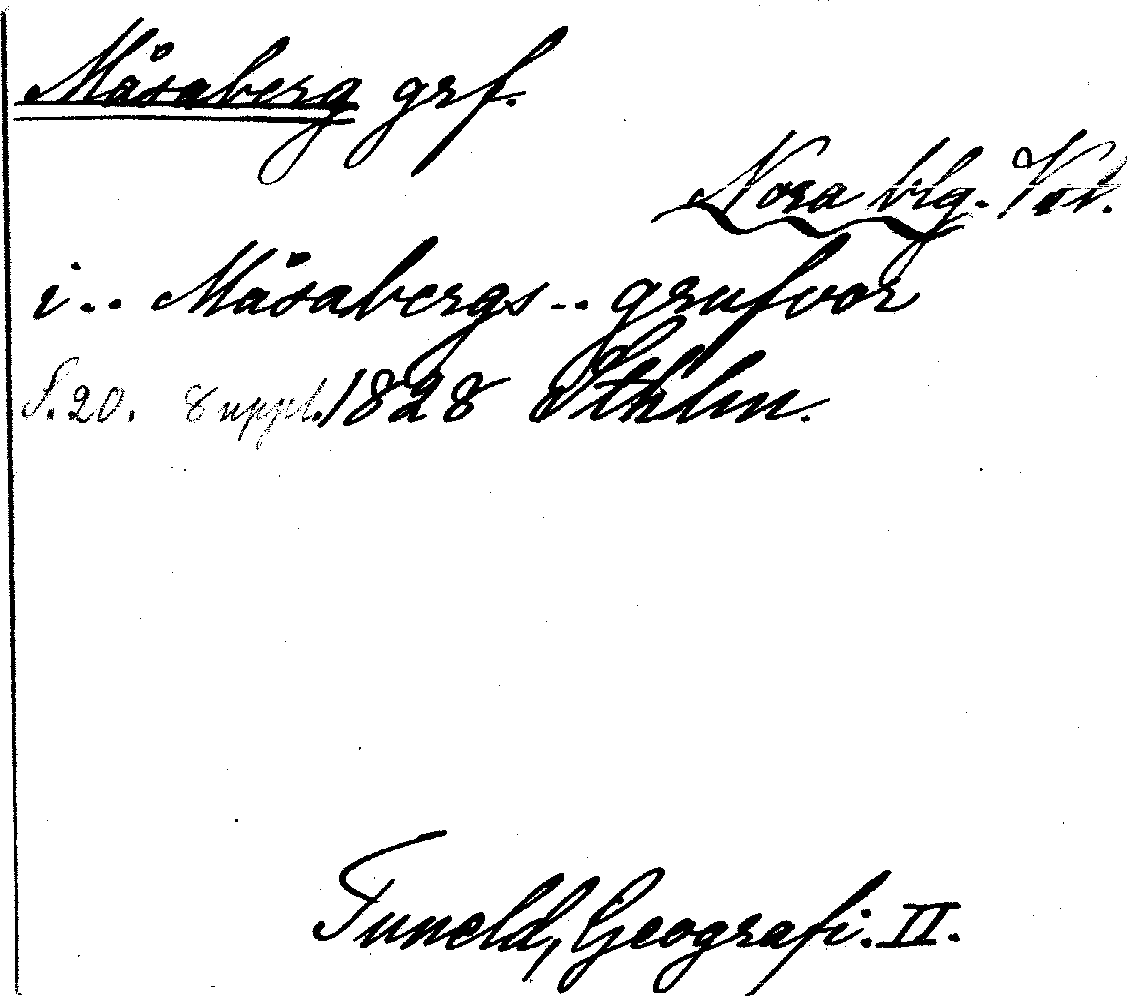 Måsaberg grf.
Nora blg. Vstl.
i.. Måsabergs .. grufvor
S. 20. Suppl. 1828 Sthlm.
Tuneld, Geografi. II.